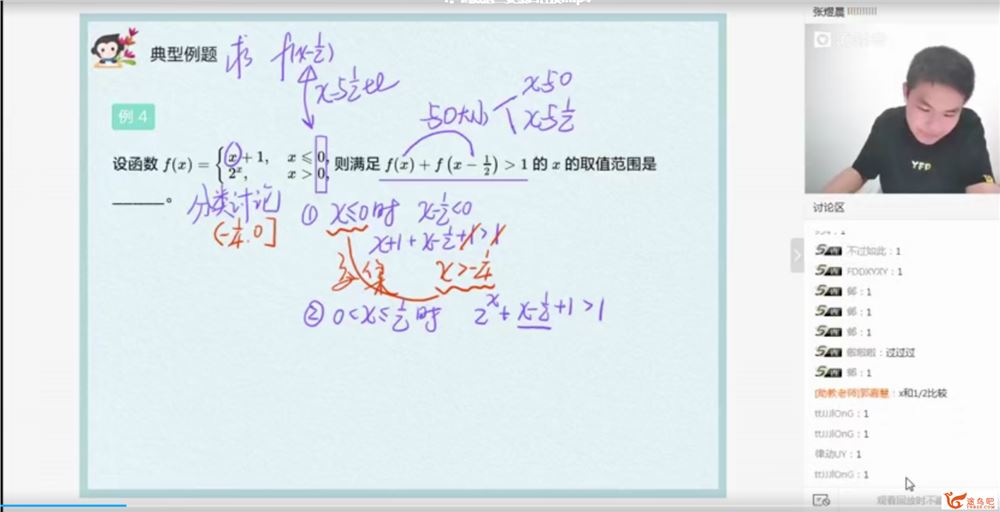 张煜晨
典型例题 求 f(x-1/2)
x与1/2大
与0大小
x与0
x与1/2
例 4
设函数 f(x) = { x + 1, x ⩽ 0, 2^x, x > 0, 则满足 f(x) + f(x − 1/2) > 1 的 x 的取值范围是
______。
分类讨论
(-1/4, 0]
① x≤0时 x-1/2<0
x+1+x-1/2+1>1
交集 x>-1/4
② 0<x≤1/2时 2^x+x-1/2+1>1
YFD
讨论区
不过如此：1
FDDXYXY：1
鄉：1
鄉：1
鄉：1
啦啦：过过过
鄉：1
[助教老师]郭嘉慧：x和1/2比较
ttJJJIOnG：1
ttJJJIOnG：1
律动UY：1
ttJJJIOnG：1
观看回放时不
途鸟吧